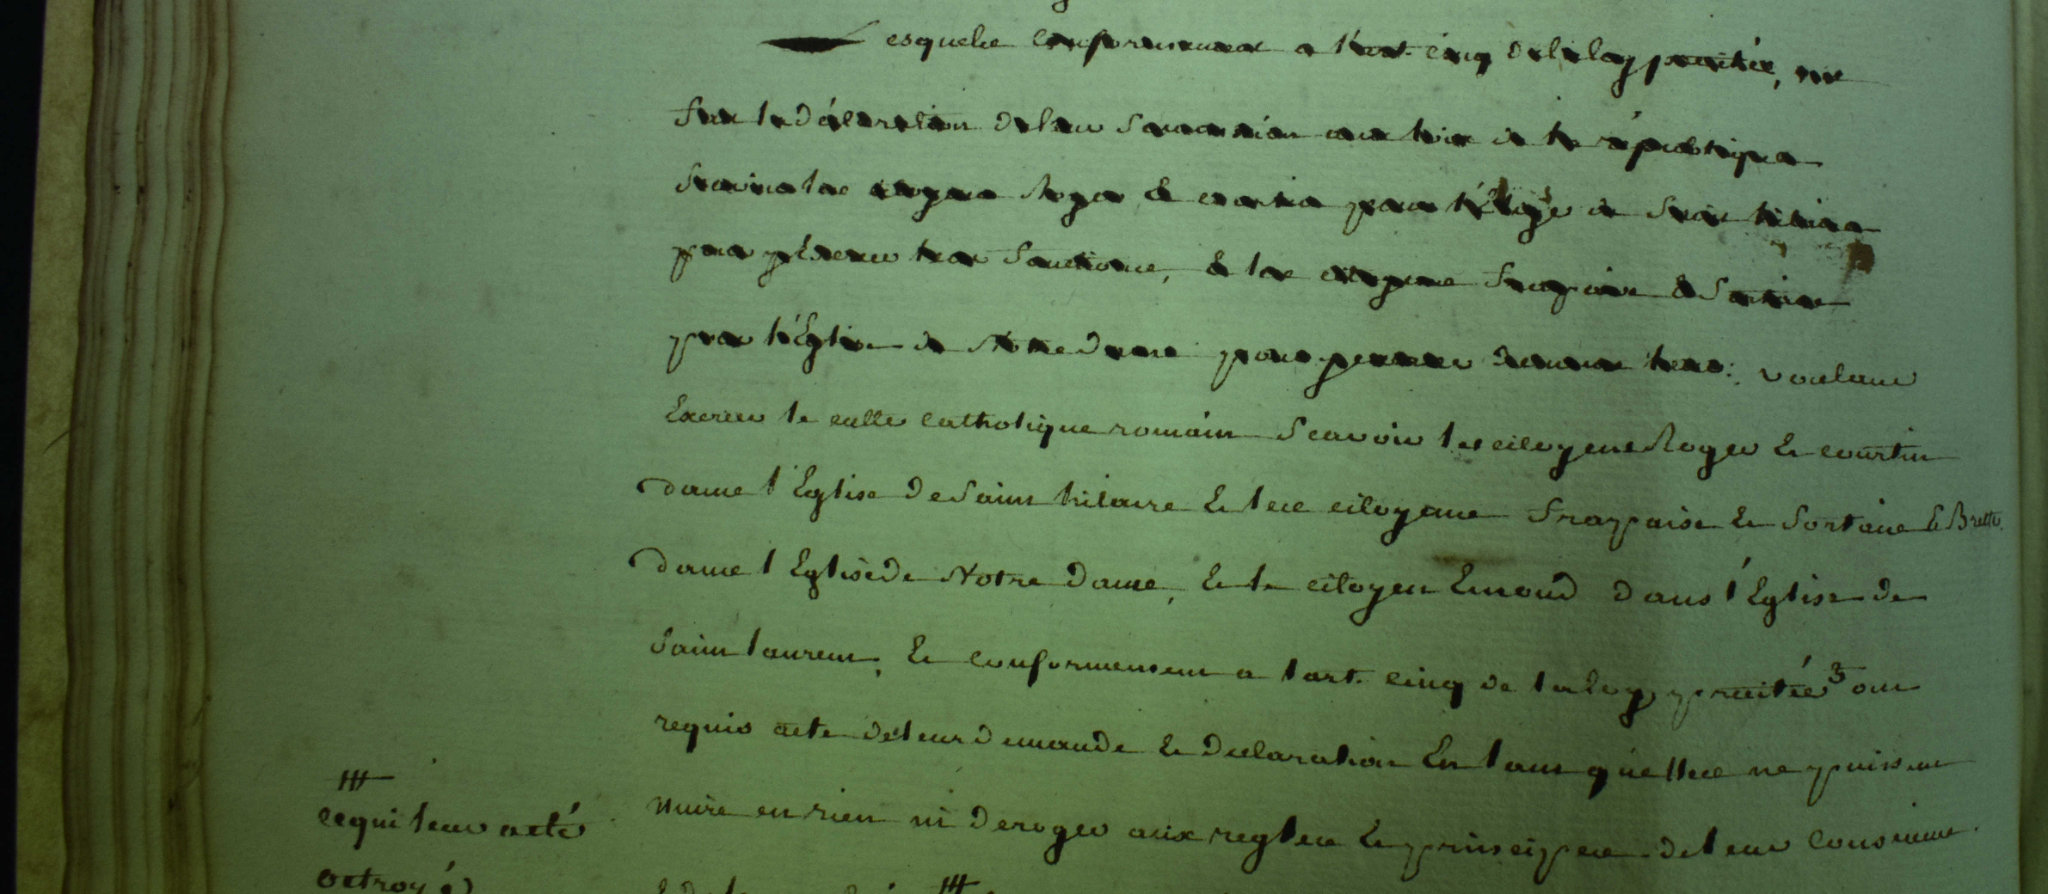 esquels conformement a l'art. cinq de la loy precitée, ont
fait la déclaration de leur soumission aux loix de la république
sçavoir les citoyens Roger & courtin pour l'église de Saint hilaire
& les citoyens frapaise & Sortaine
pour l'Eglise de Notre dame voulant
Exercer le culte catholique romain Scavoir les citoyens Roger & courtin
dans l'Eglise de Saint hilaire & les citoyens frapaise & Sortaine & Brette
dans l'Eglise de Notre dame, & le citoyen Emond dans l'Eglise de
Saint laurent, & conformement a l'art. cinq de la loy precitée ont
requis acte de leur demande & declaration En tant qu'elles ne puissent
nuire en rien ni deroger aux regles & principes de leur conscience
ce qui leur a eté
octroyé